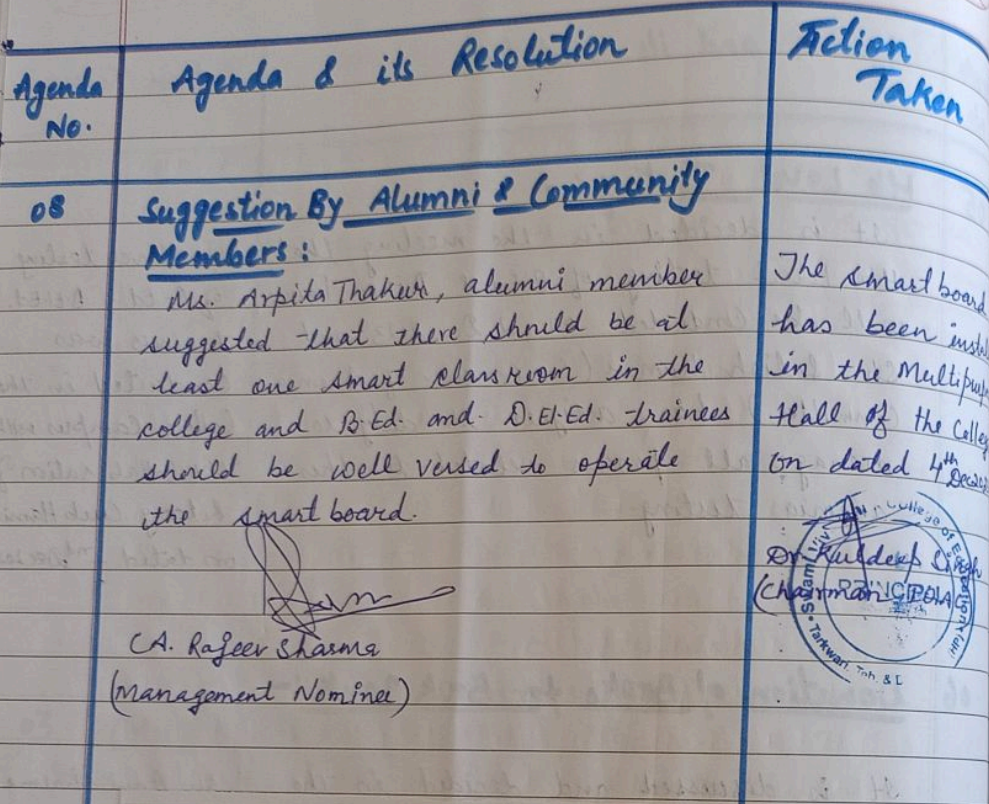 Agenda No.
Agenda & its Resolution
Action Taken
08
Suggestion By Alumni & Community
Members :
Ms. Arpita Thakur, alumni member
suggested that there should be at
least one smart class room in the
college and B.Ed. and D.El.Ed. trainees
should be well versed to operate
the smart board.
CA. Rajeev Sharma
(Management Nominee)
The smart board
has been
in the
Hall of the
on dated 4th
Dr Kuldeep Singh
(Chairman
College of Education
Tarkwari